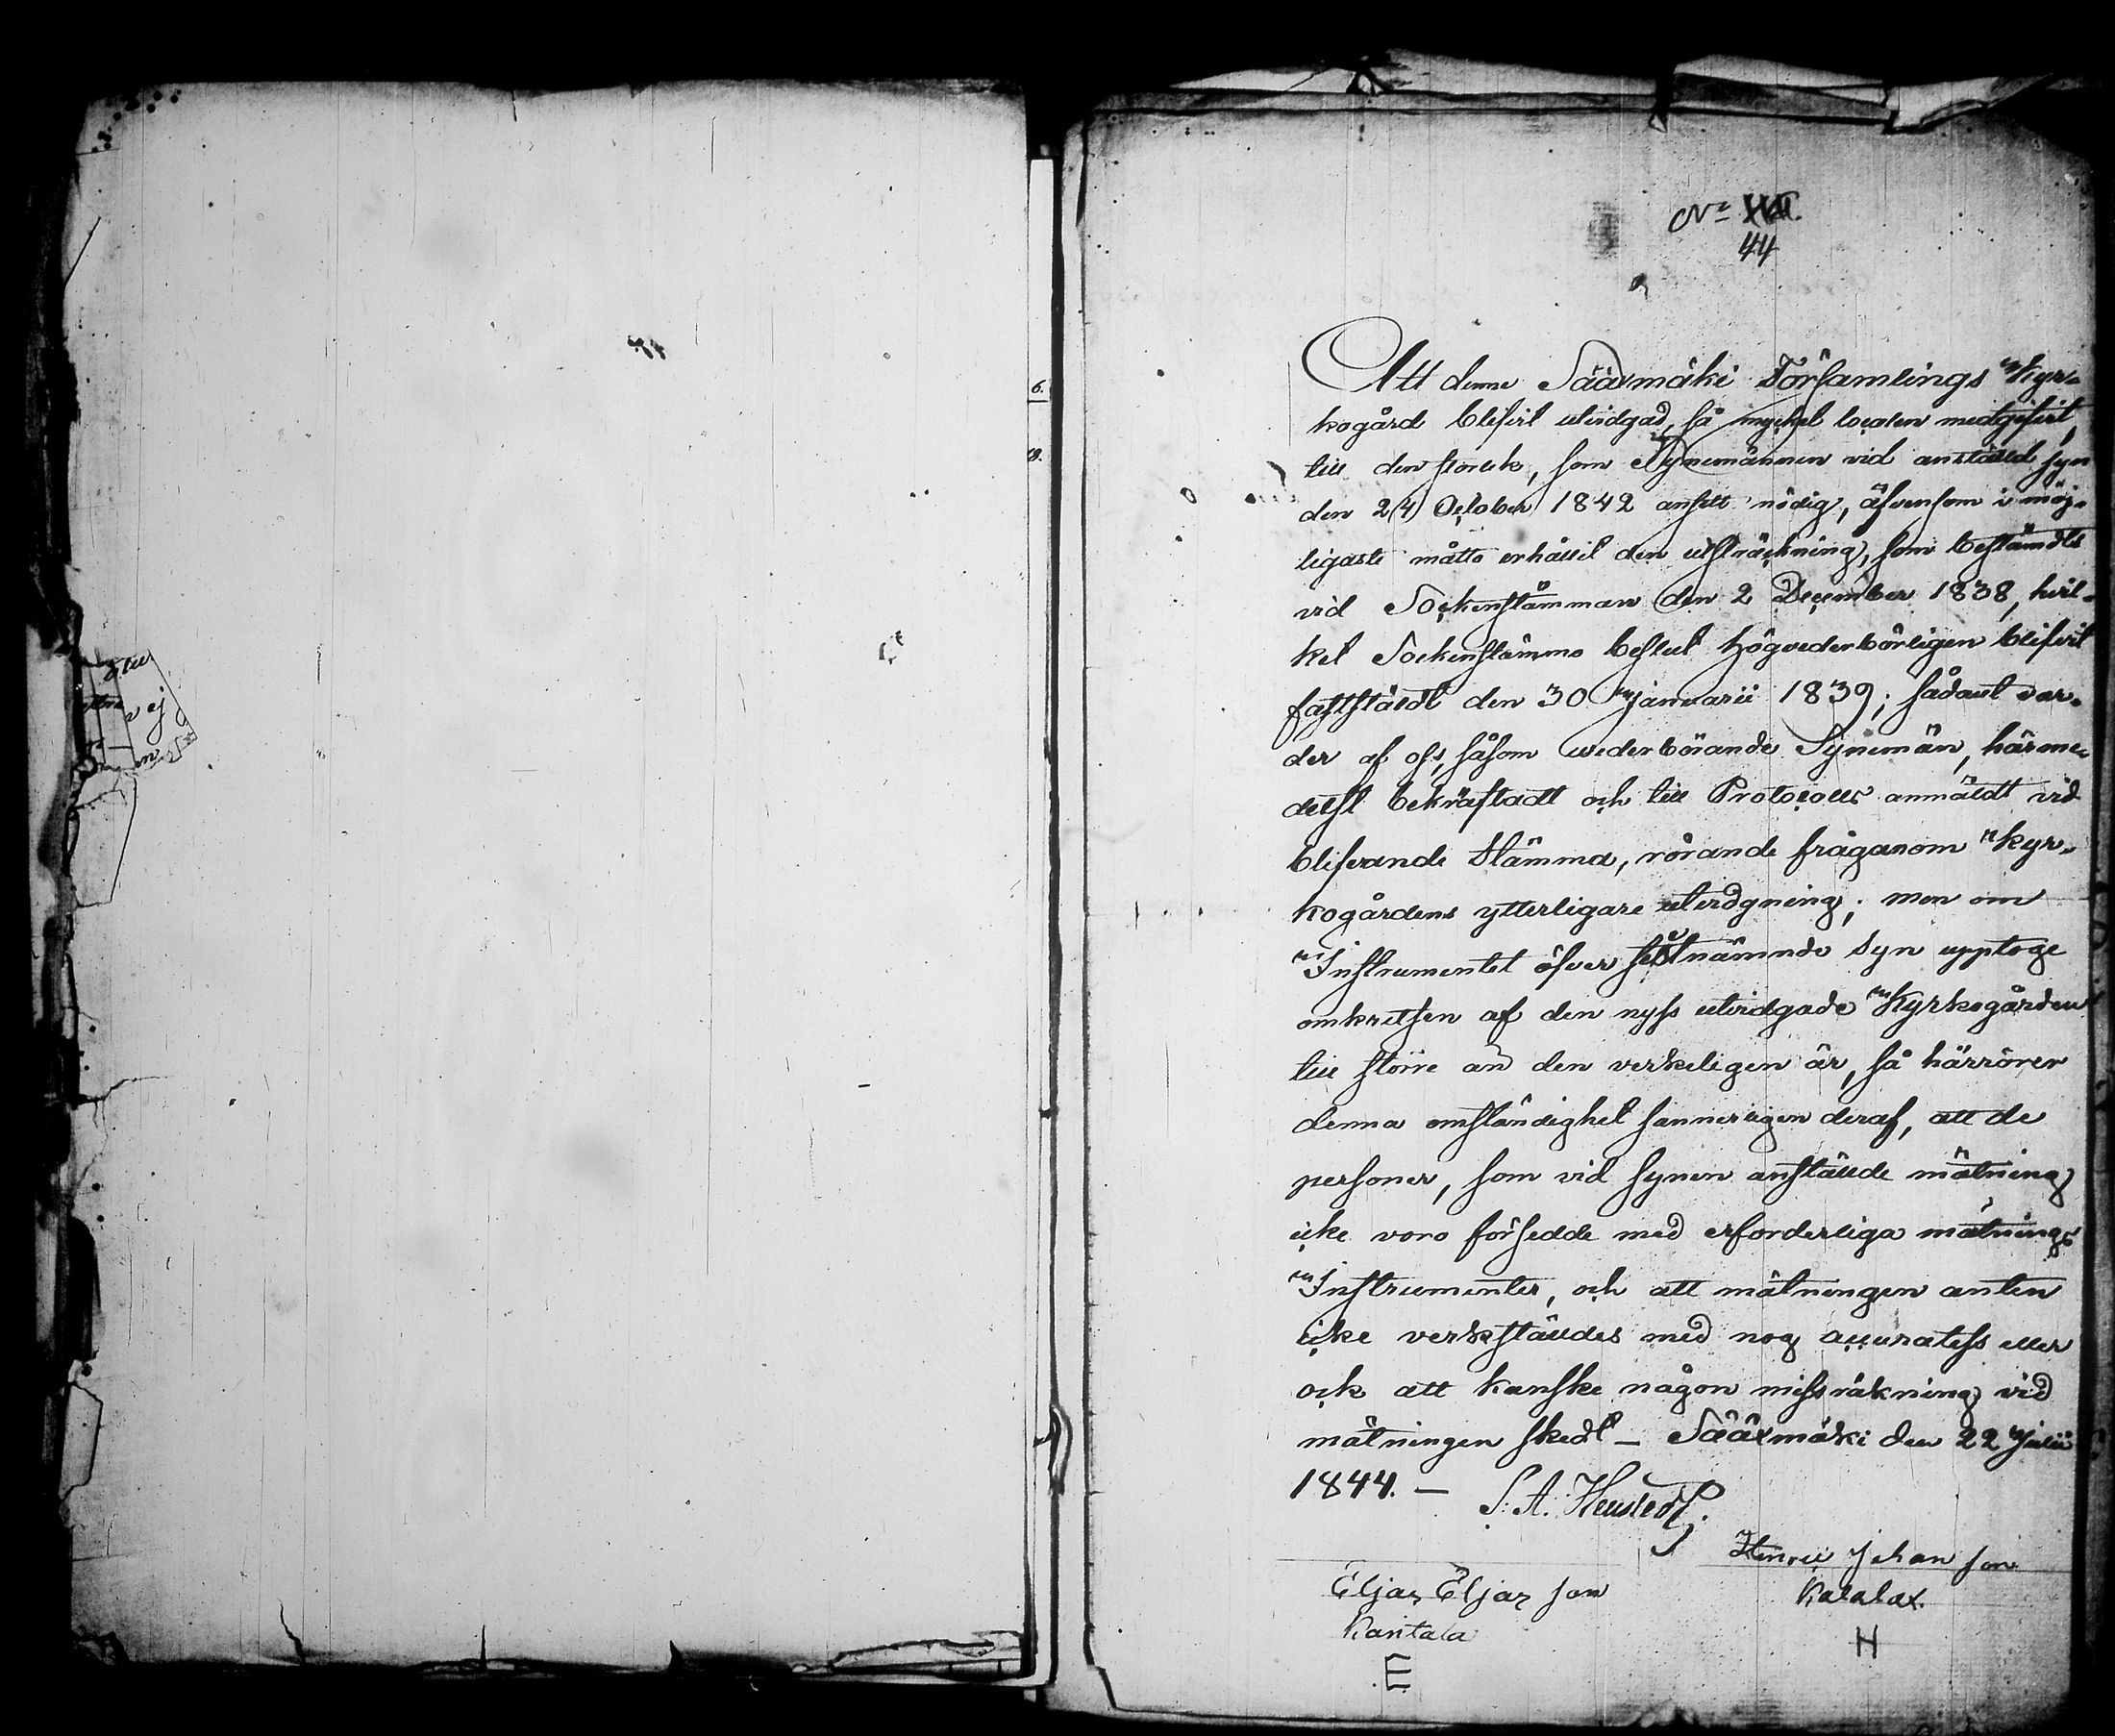 6.
N:o XVII.
44
Att denna Sääxmäki Församlings Kyr-
kogård blifvit utvidgad, så mycket localen medgifvit,
till den storlek, som Synemännen vid anstäld syn
den 24 October 1842 ansett nödig, äfvensom i möj-
ligaste måtto erhållit den utsträckning, som bestämdts
vid Sockenstämman den 2 December 1838, hvil-
ket Sockenstämmo beslut högvederbörligen blifvit
fastställdt den 30 Januarii 1839; sådant var-
der af oss, såsom vederbörande Synemän, härme-
delst bekräftadt och till Protocolls anmäldt vid
blifvande Stämma, rörande frågan om Kyr-
kogårdens ytterligare utvidgning; men om
Instrumentet öfver sistnämnde Syn upptoge
omkretsen af den nyss utvidgade Kyrkogården
till större än den verkeligen är, så härrörer
denna omständighet sannerligen deraf, att de
personer, som vid synen anställde mätning
icke voro försedde med erforderliga mätnings
Instrumenter, och att mätningen anten
icke verkställdes med nog accuratess eller
ock att kanske någon missräkning vid
mätningen skedt – Sääxmäki den 22 Julii
1844. –
Henric Johan son
Eljas Eljas son
Kalalax.
Karitala
H
E